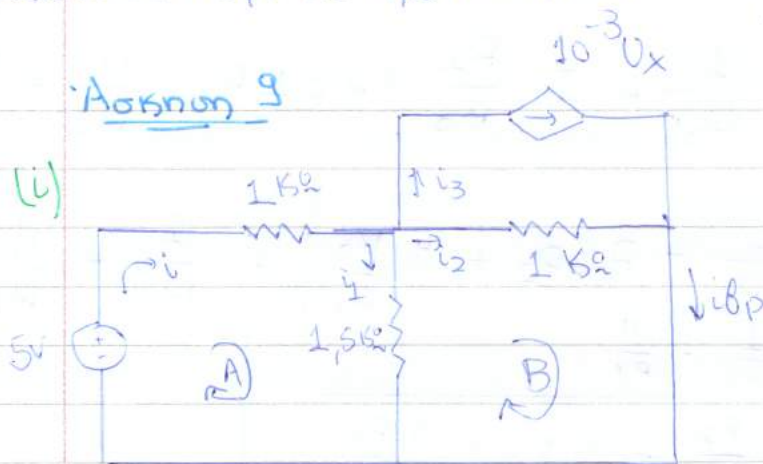 10⁻³Ux
Άσκηση 9
(i)
1 KΩ
i₃
i
i₁
i₂
1 KΩ
iβρ
5V
1,5KΩ
A
B